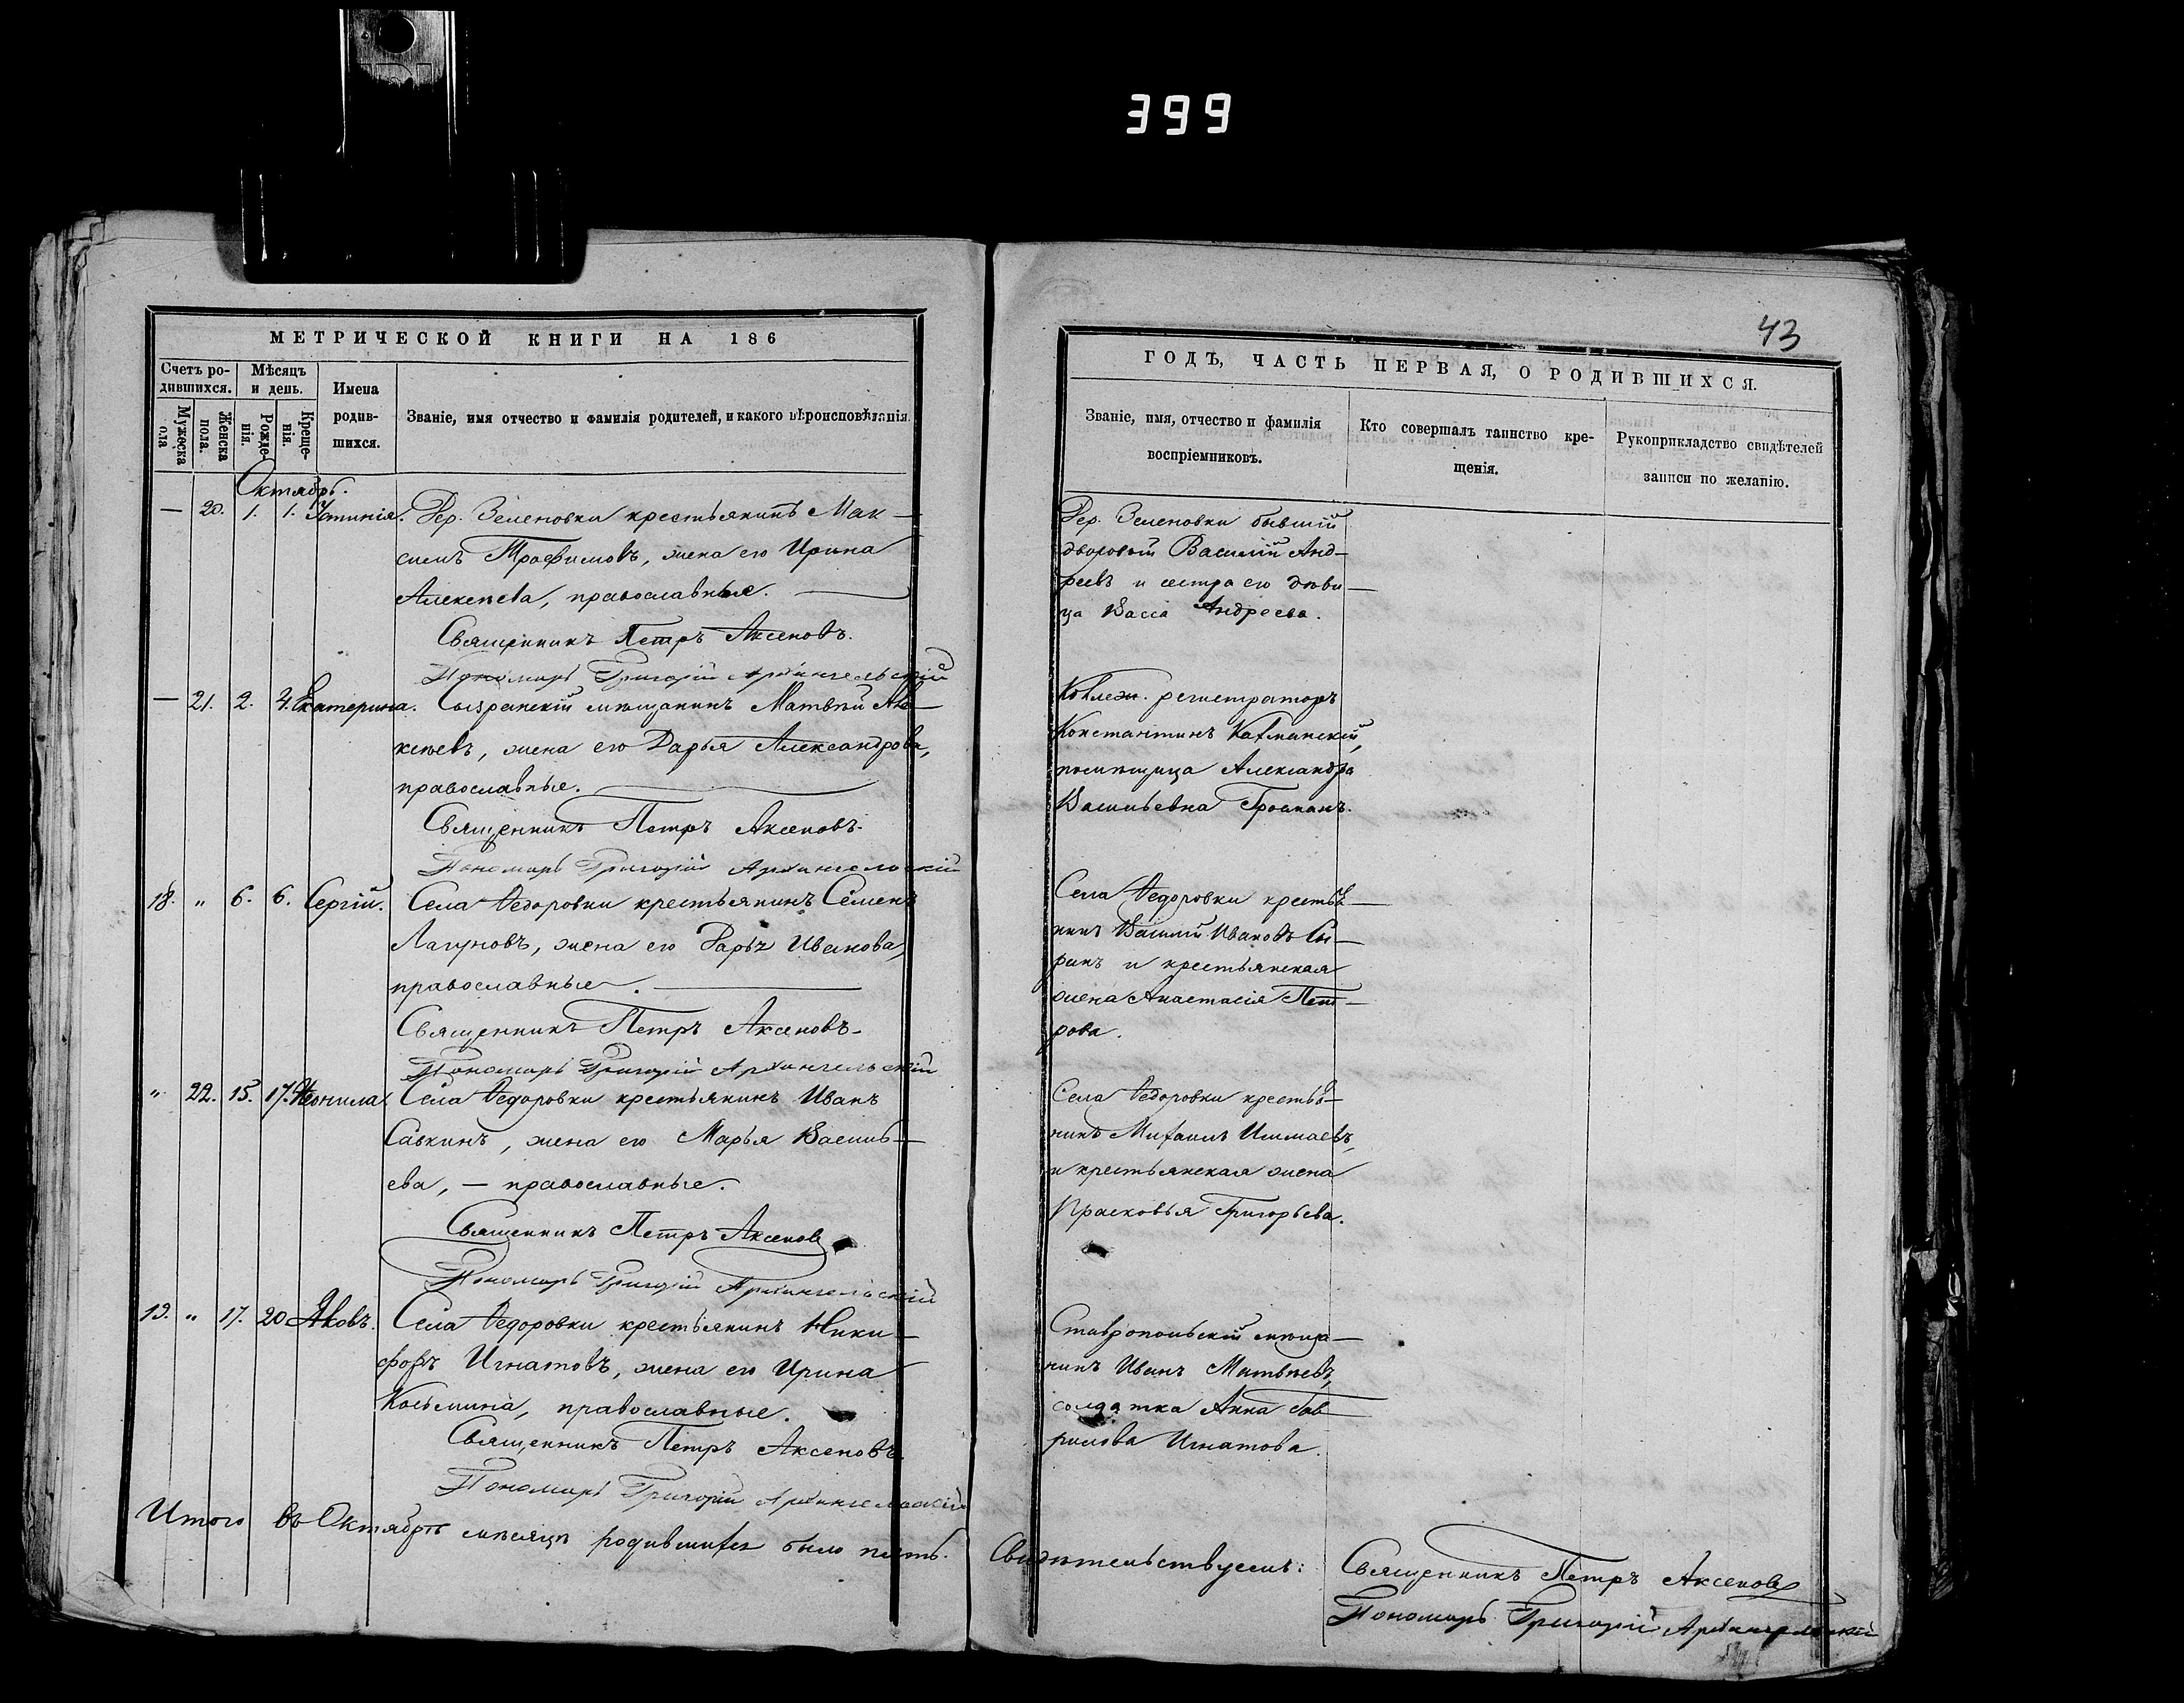 399
43
МЕТРИЧЕСКОЙ КНИГИ НА 186
Счетъ ро-
дившихся.
Мѣсяцъ
и день.
Мужеска
пола
Женска
пола.
Рожде-
нія.
Креще-
нія.
Имена
родив-
шихся.
Званіе, имя отчество и фамилія родителей, и какого вѣроисповѣданія.
Октябрь.
— 20. 1. 1. Устинія. Дер. Зеленовки крестьянинъ Мак-
симъ Трофимовъ, жена его Ирина
Алексѣева, православные.
Священникъ Петръ Аксеновъ.
Пономарь Григорій Архангельскій
— 21. 2. 4. Екатерина. Сызранскій мѣщанинъ Матвѣй
жена его Дарья Александрова,
православные.
Священникъ Петръ Аксеновъ.
Пономарь Григорій Архангельскій
18. „ 6. 6. Сергій. Села Ѳедоровки крестьянинъ Семенъ
Лагуновъ, жена его Дарья Иванова,
православные.
Священникъ Петръ Аксеновъ
Пономарь Григорій Архангельскій
„ 22. 15. 17. Неонила. Села Ѳедоровки крестьянинъ Иванъ
Савкинъ, жена его Марья Василь-
ева, — православные.
Священникъ Петръ Аксеновъ
Пономарь Григорій Архангельскій
19. „ 17. 20 Яковъ. Села Ѳедоровки крестьянинъ Ники-
форъ Игнатовъ, жена его Ирина
Косьмина, православные.
Священникъ Петръ Аксеновъ
Пономарь Григорій Архангельскій
Итого въ Октябрѣ мѣсяцѣ родившихся было пять.
ГОДЪ, ЧАСТЬ ПЕРВАЯ, О РОДИВШИХСЯ.
Званіе, имя, отчество и фамилія
воспріемниковъ.
Кто совершалъ таинство кре-
щенія.
Рукоприкладство свидѣтелей
записи по желанію.
Дер. Зеленовки бывшій
дворовый Василій Анд-
реевъ и сестра его дѣви-
ца Васса Андреева.
Коллеж. регистраторъ
Константинъ
помѣщица Александра
Васильевна
Села Ѳедоровки крестья-
нинъ Василій Ивановъ Сы-
ринъ и крестьянская
жена Анастасія Пет-
рова.
Села Ѳедоровки крестья-
нинъ Михаилъ
и крестьянская жена
Прасковья Григорьева.
Ставропольскій мѣща-
нинъ Иванъ Матвѣевъ,
солдатка Анна Гав-
рилова Игнатова.
Свидѣтельствуемъ: Священникъ Петръ Аксеновъ
Пономарь Григорій Архангельскій